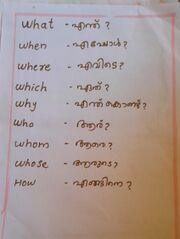 what - എന്ത് ?
when - എപ്പോൾ ?
where - എവിടെ ?
which - ഏത് ?
why - എന്ത് കൊണ്ട് ?
who - ആര് ?
whom - ആരെ ?
whose - ആരുടെ ?
How - എങ്ങിനെ ?